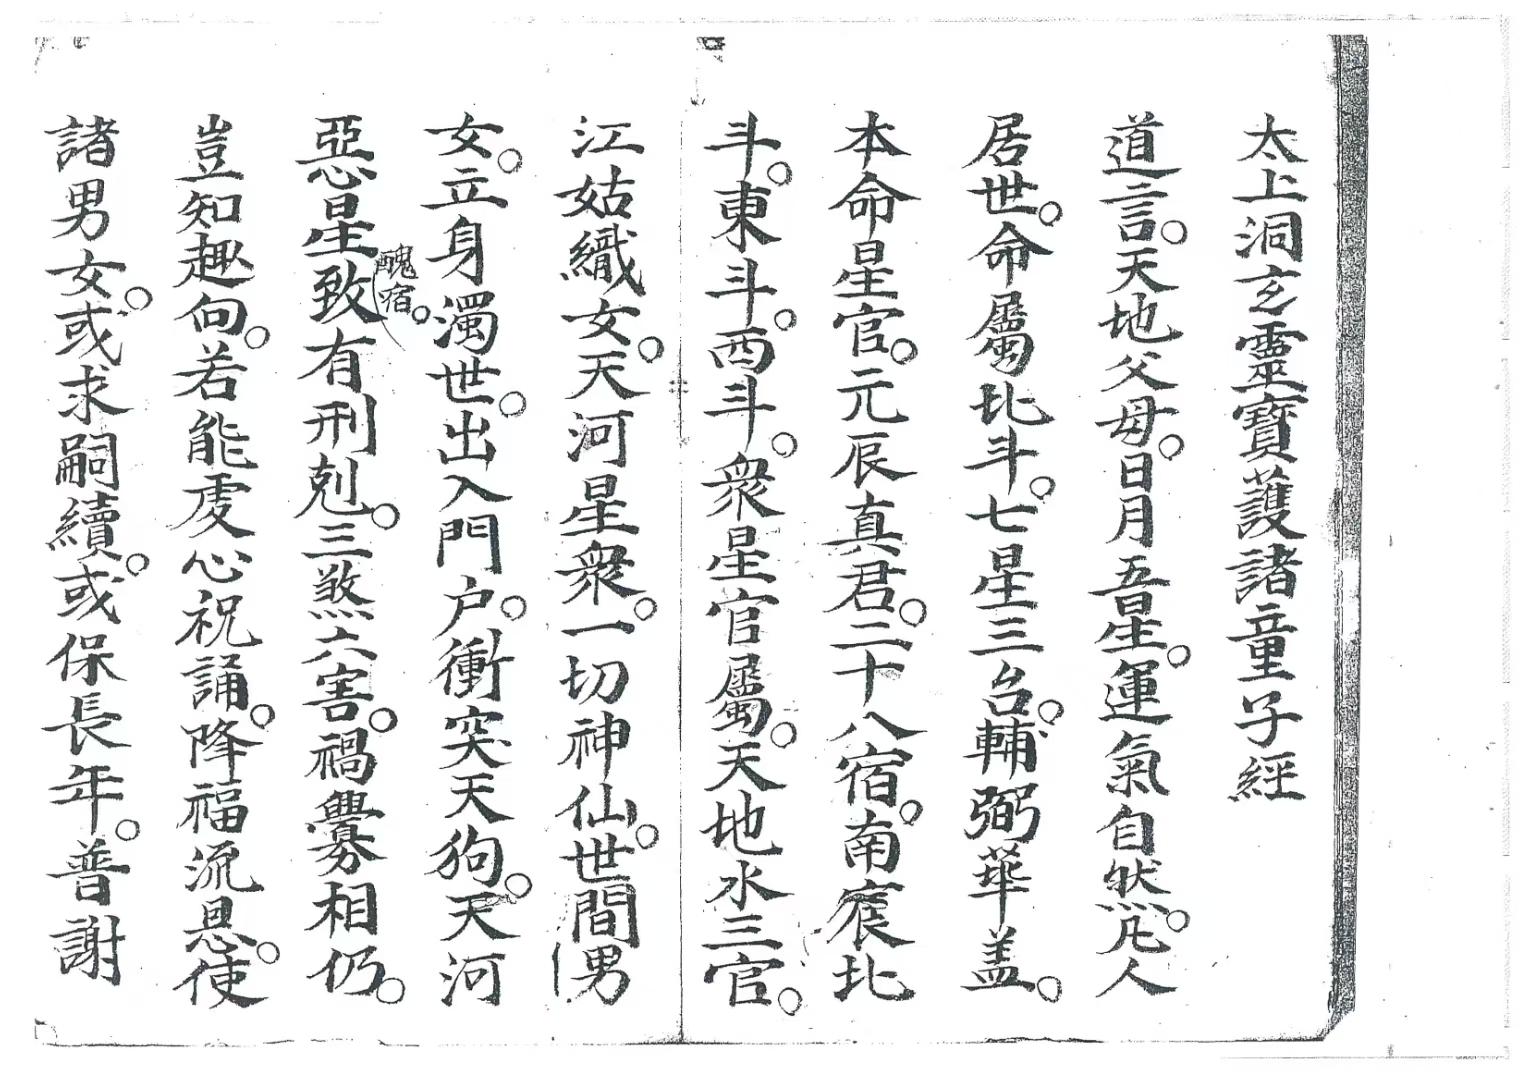 太上洞玄靈寶護諸童子經
道言。天地父母。日月吾星。運氣自然。凡人
居世。命屬北斗。七星三台。輔弼華盖。
本命星官。元辰真君。二十八宿。南宸北
斗。東斗。西斗。衆星官屬。天地水三官。
江姑織女。天河星衆。一切神仙。世間男
女。立身濁世。出入門户。衝突天狗。天河
惡星致有刑剋。三煞六害。禍釁相仍。
醜宿。
豈知趣向。若能虔心祝誦。降福流恩。使
諸男女。或求嗣續。或保長年。普謝